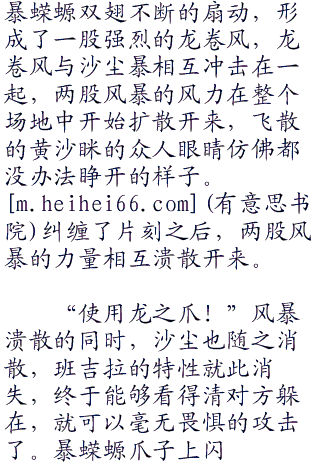 暴蝾螈双翅不断的扇动，形
成了一股强烈的龙卷风，龙
卷风与沙尘暴相互冲击在一
起，两股风暴的风力在整个
场地中开始扩散开来，飞散
的黄沙眯的众人眼睛仿佛都
没办法睁开的样子。
[m.heihei66.com](有意思书
院)纠缠了片刻之后，两股风
暴的力量相互溃散开来。
“使用龙之爪！”风暴
溃散的同时，沙尘也随之消
散，班吉拉的特性就此消
失，终于能够看得清对方躲
在，就可以毫无畏惧的攻击
了。暴蝾螈爪子上闪